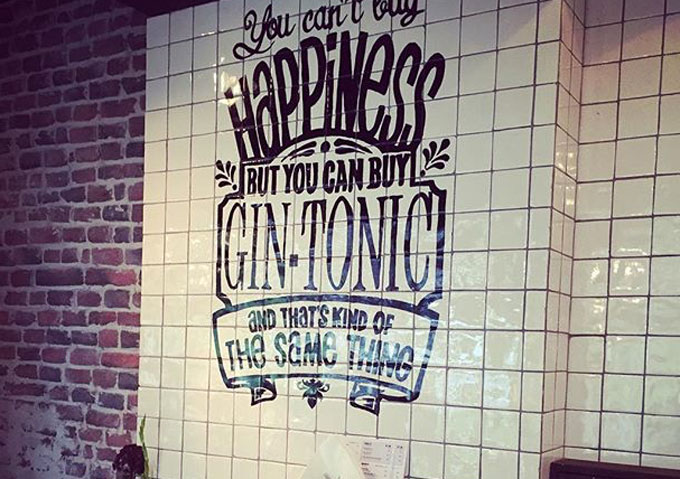 You can't buy
HAPPINESS
BUT YOU CAN BUY
GIN-TONIC
AND THAT'S KIND OF
THE SAME THING